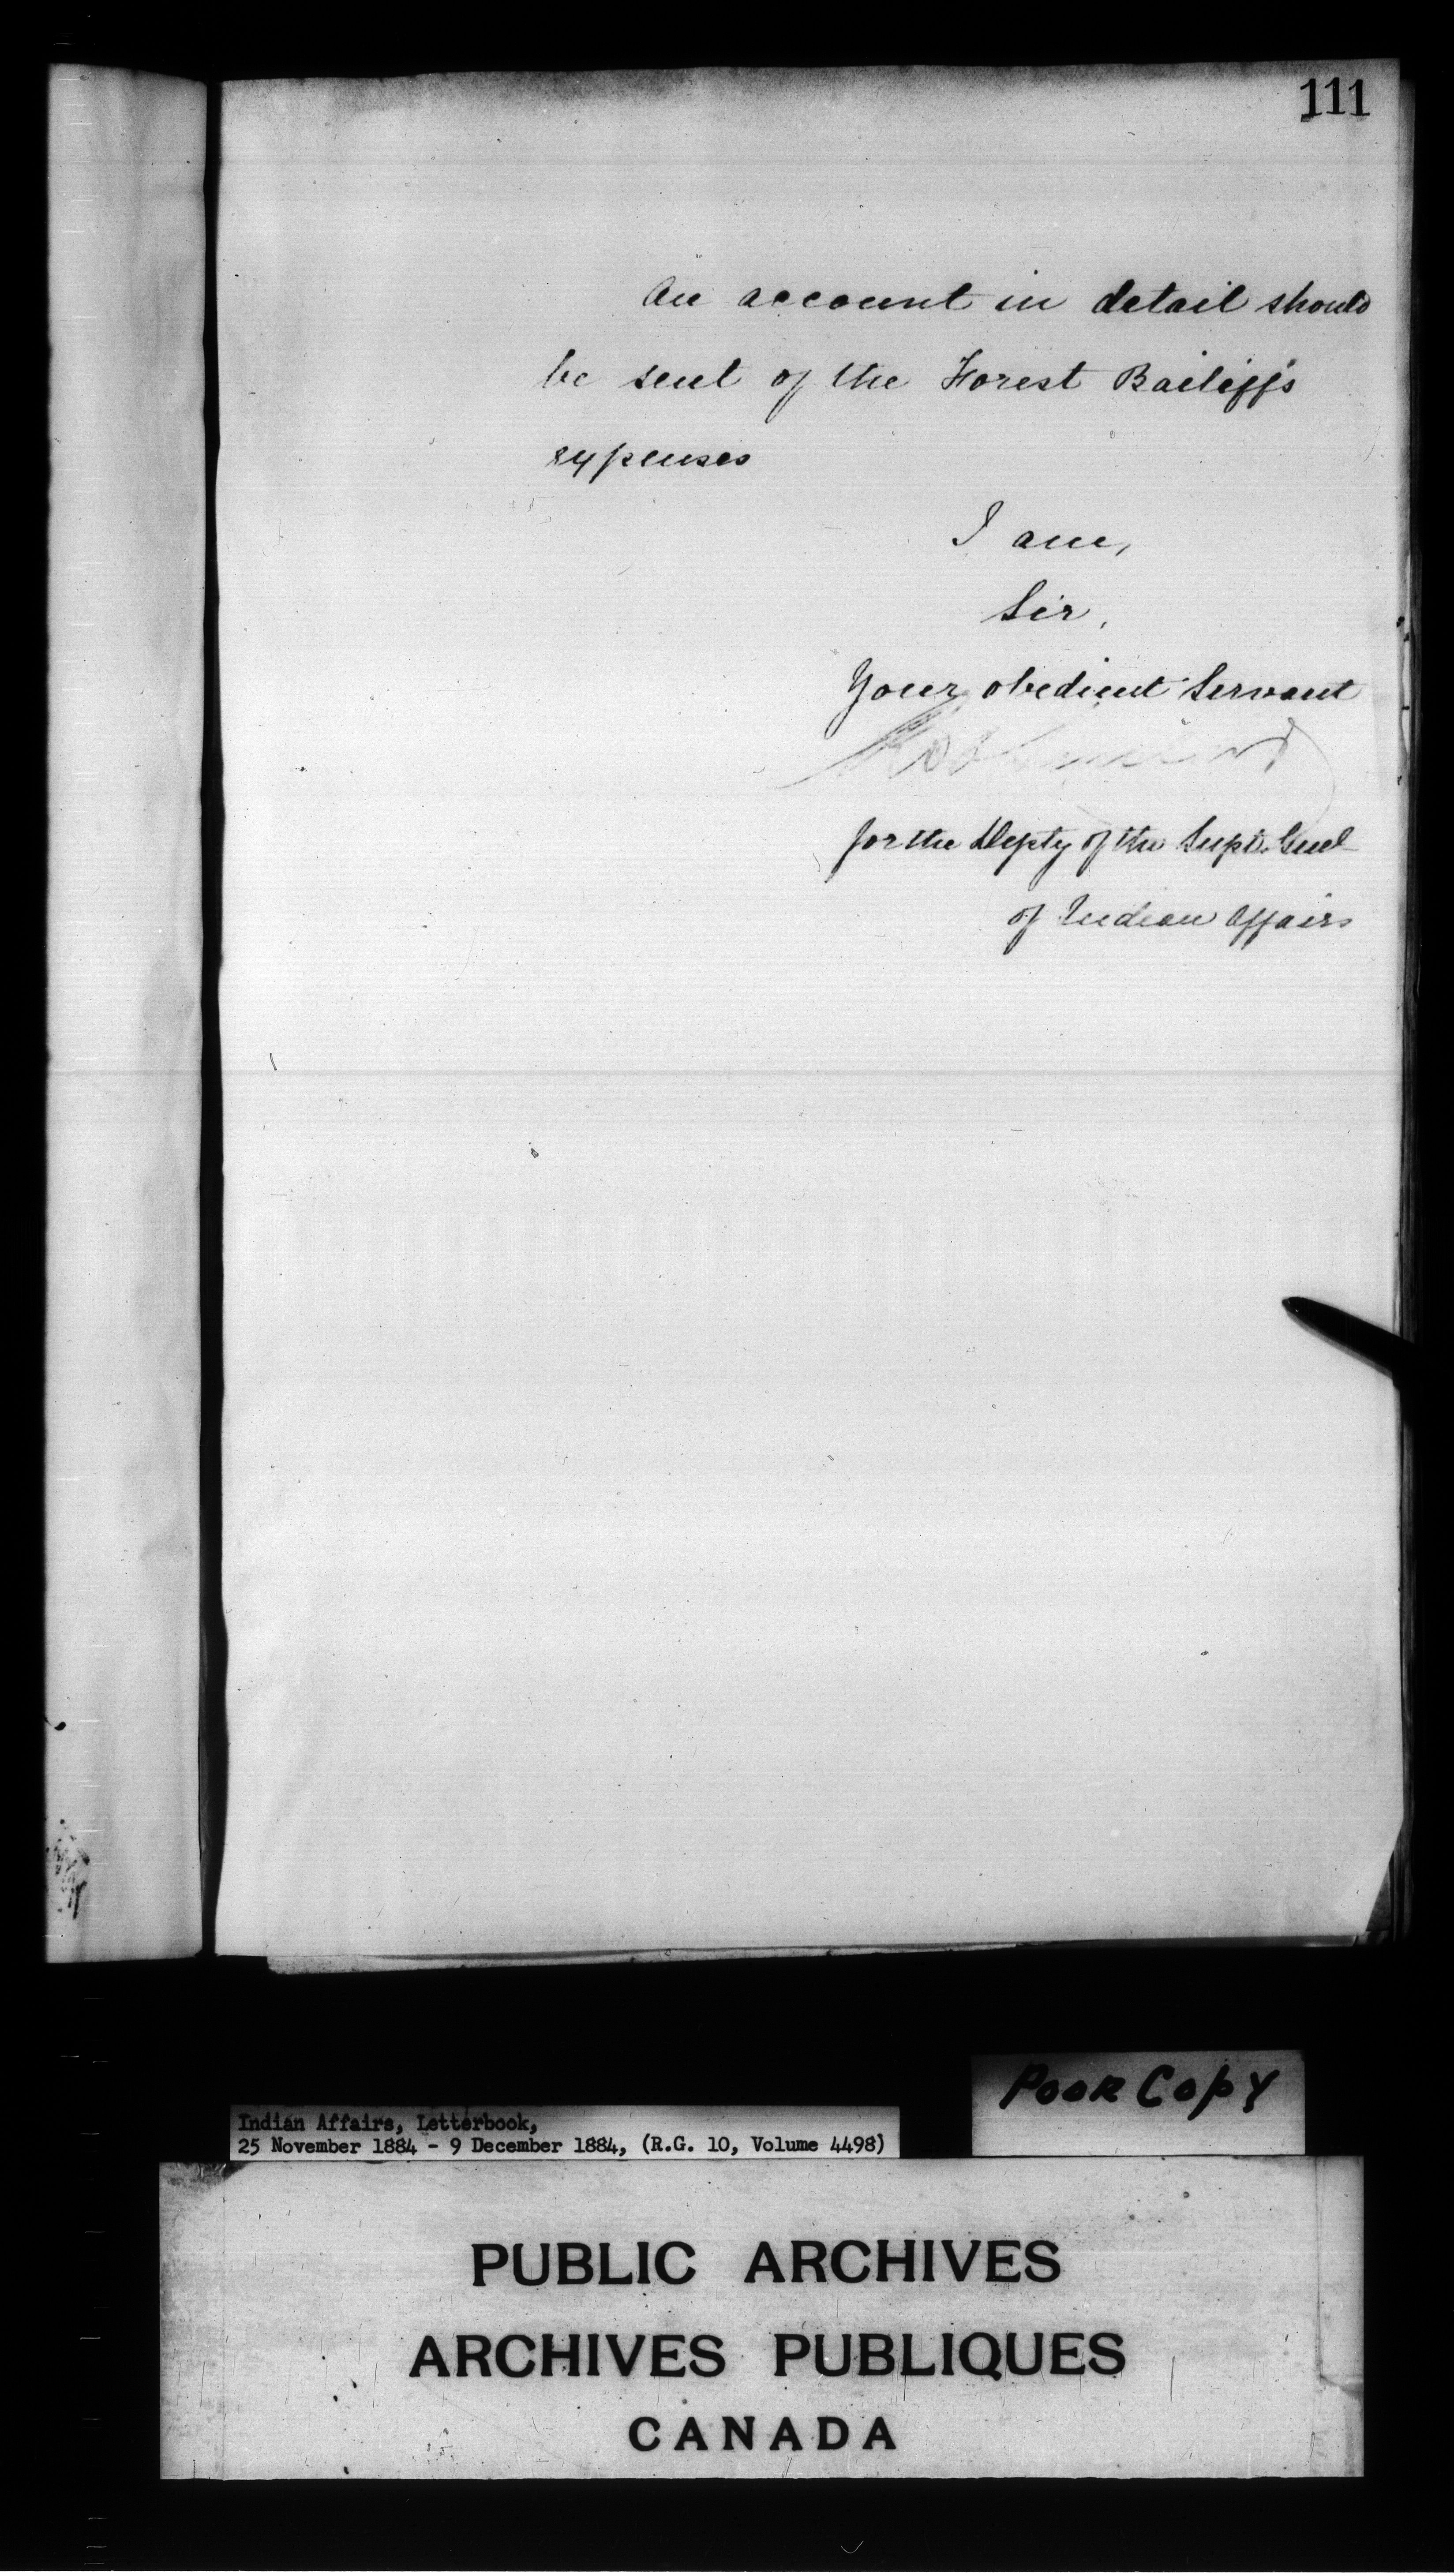 111
An account in detail should
be sent of the Forest Bailiff's
expenses
I am,
Sir,
Your obedient Servant
for the Depty of the Supt. Genl
of Indian Affairs
Poor Copy
Indian Affairs, Letterbook,
25 November 1884 - 9 December 1884, (R.G. 10, Volume 4498)
PUBLIC ARCHIVES
ARCHIVES PUBLIQUES
CANADA